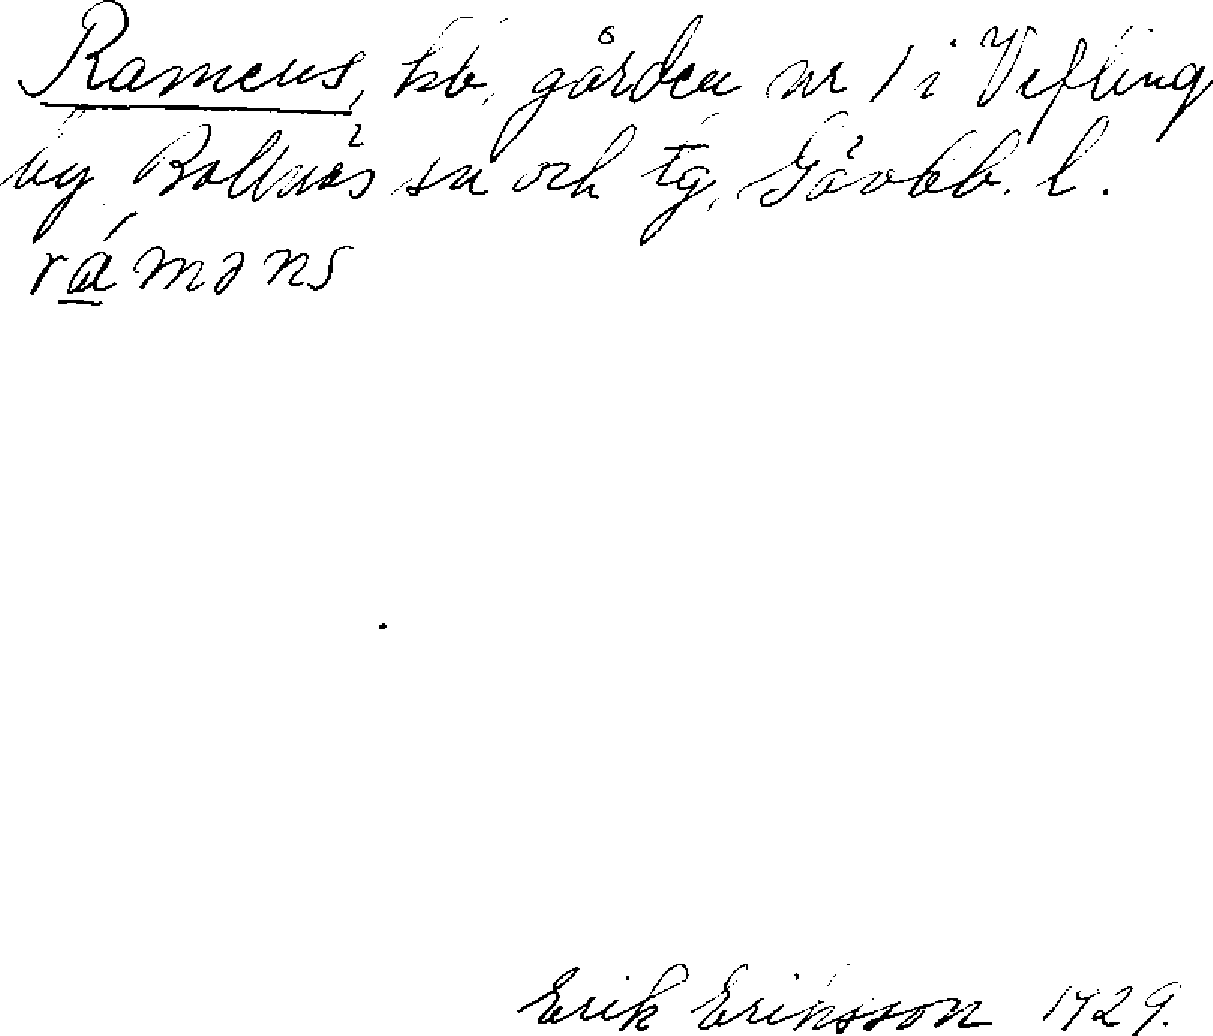 Ramens, hb. gården nr 1 i Vefling
by Bollnäs sn och tg, Gävleb. l.
rámǝns
Erik Eriksson 1929.